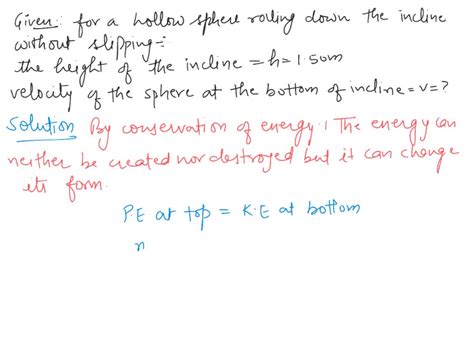 Given: for a hollow sphere rolling down the incline
without slipping:-
the height of the incline = h = 1.50m
velocity of the sphere at the bottom of incline = v = ?
Solution By conservation of energy! The energy can
neither be created nor destroyed but it can change
its form.
P.E at top = K.E at bottom